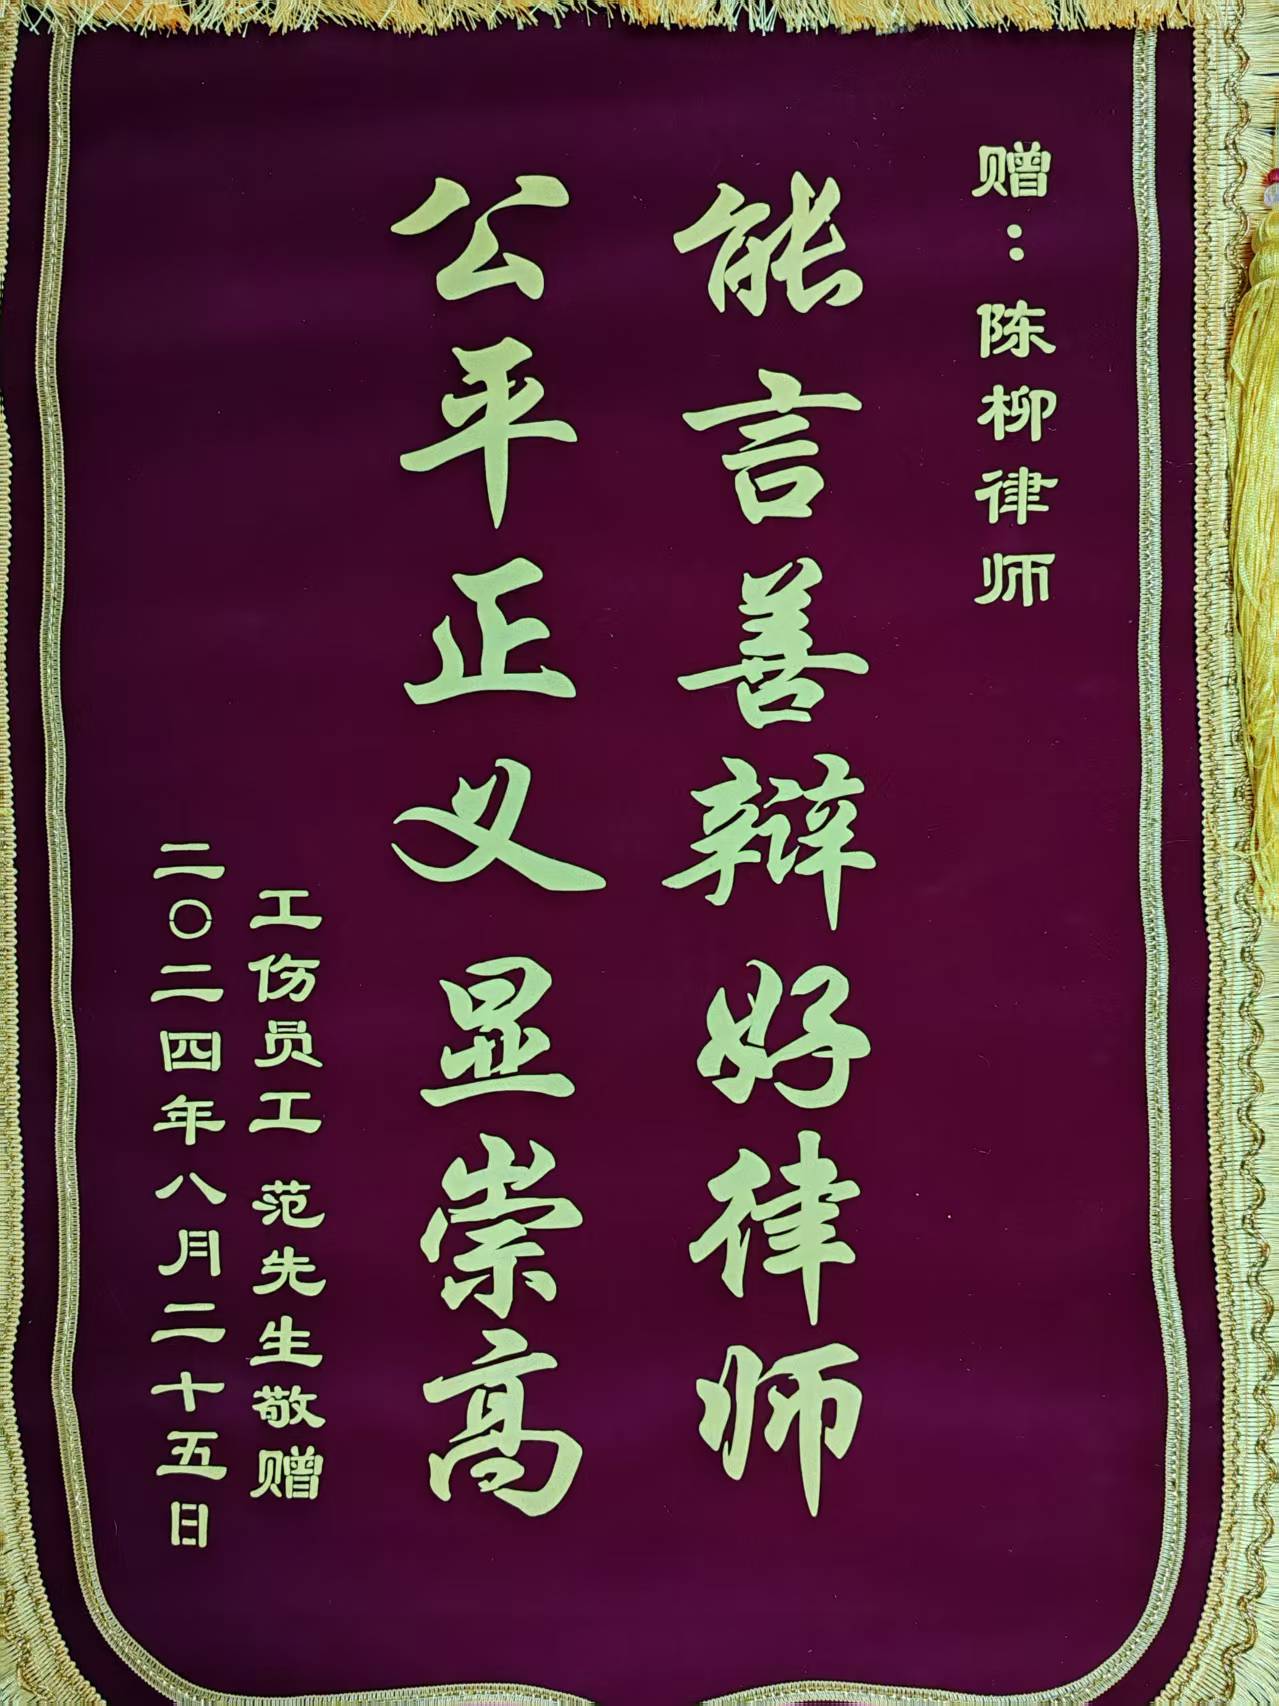 赠：陈柳律师
能言善辩好律师
公平正义显崇高
工伤员工 范先生敬赠
二〇二四年八月二十五日